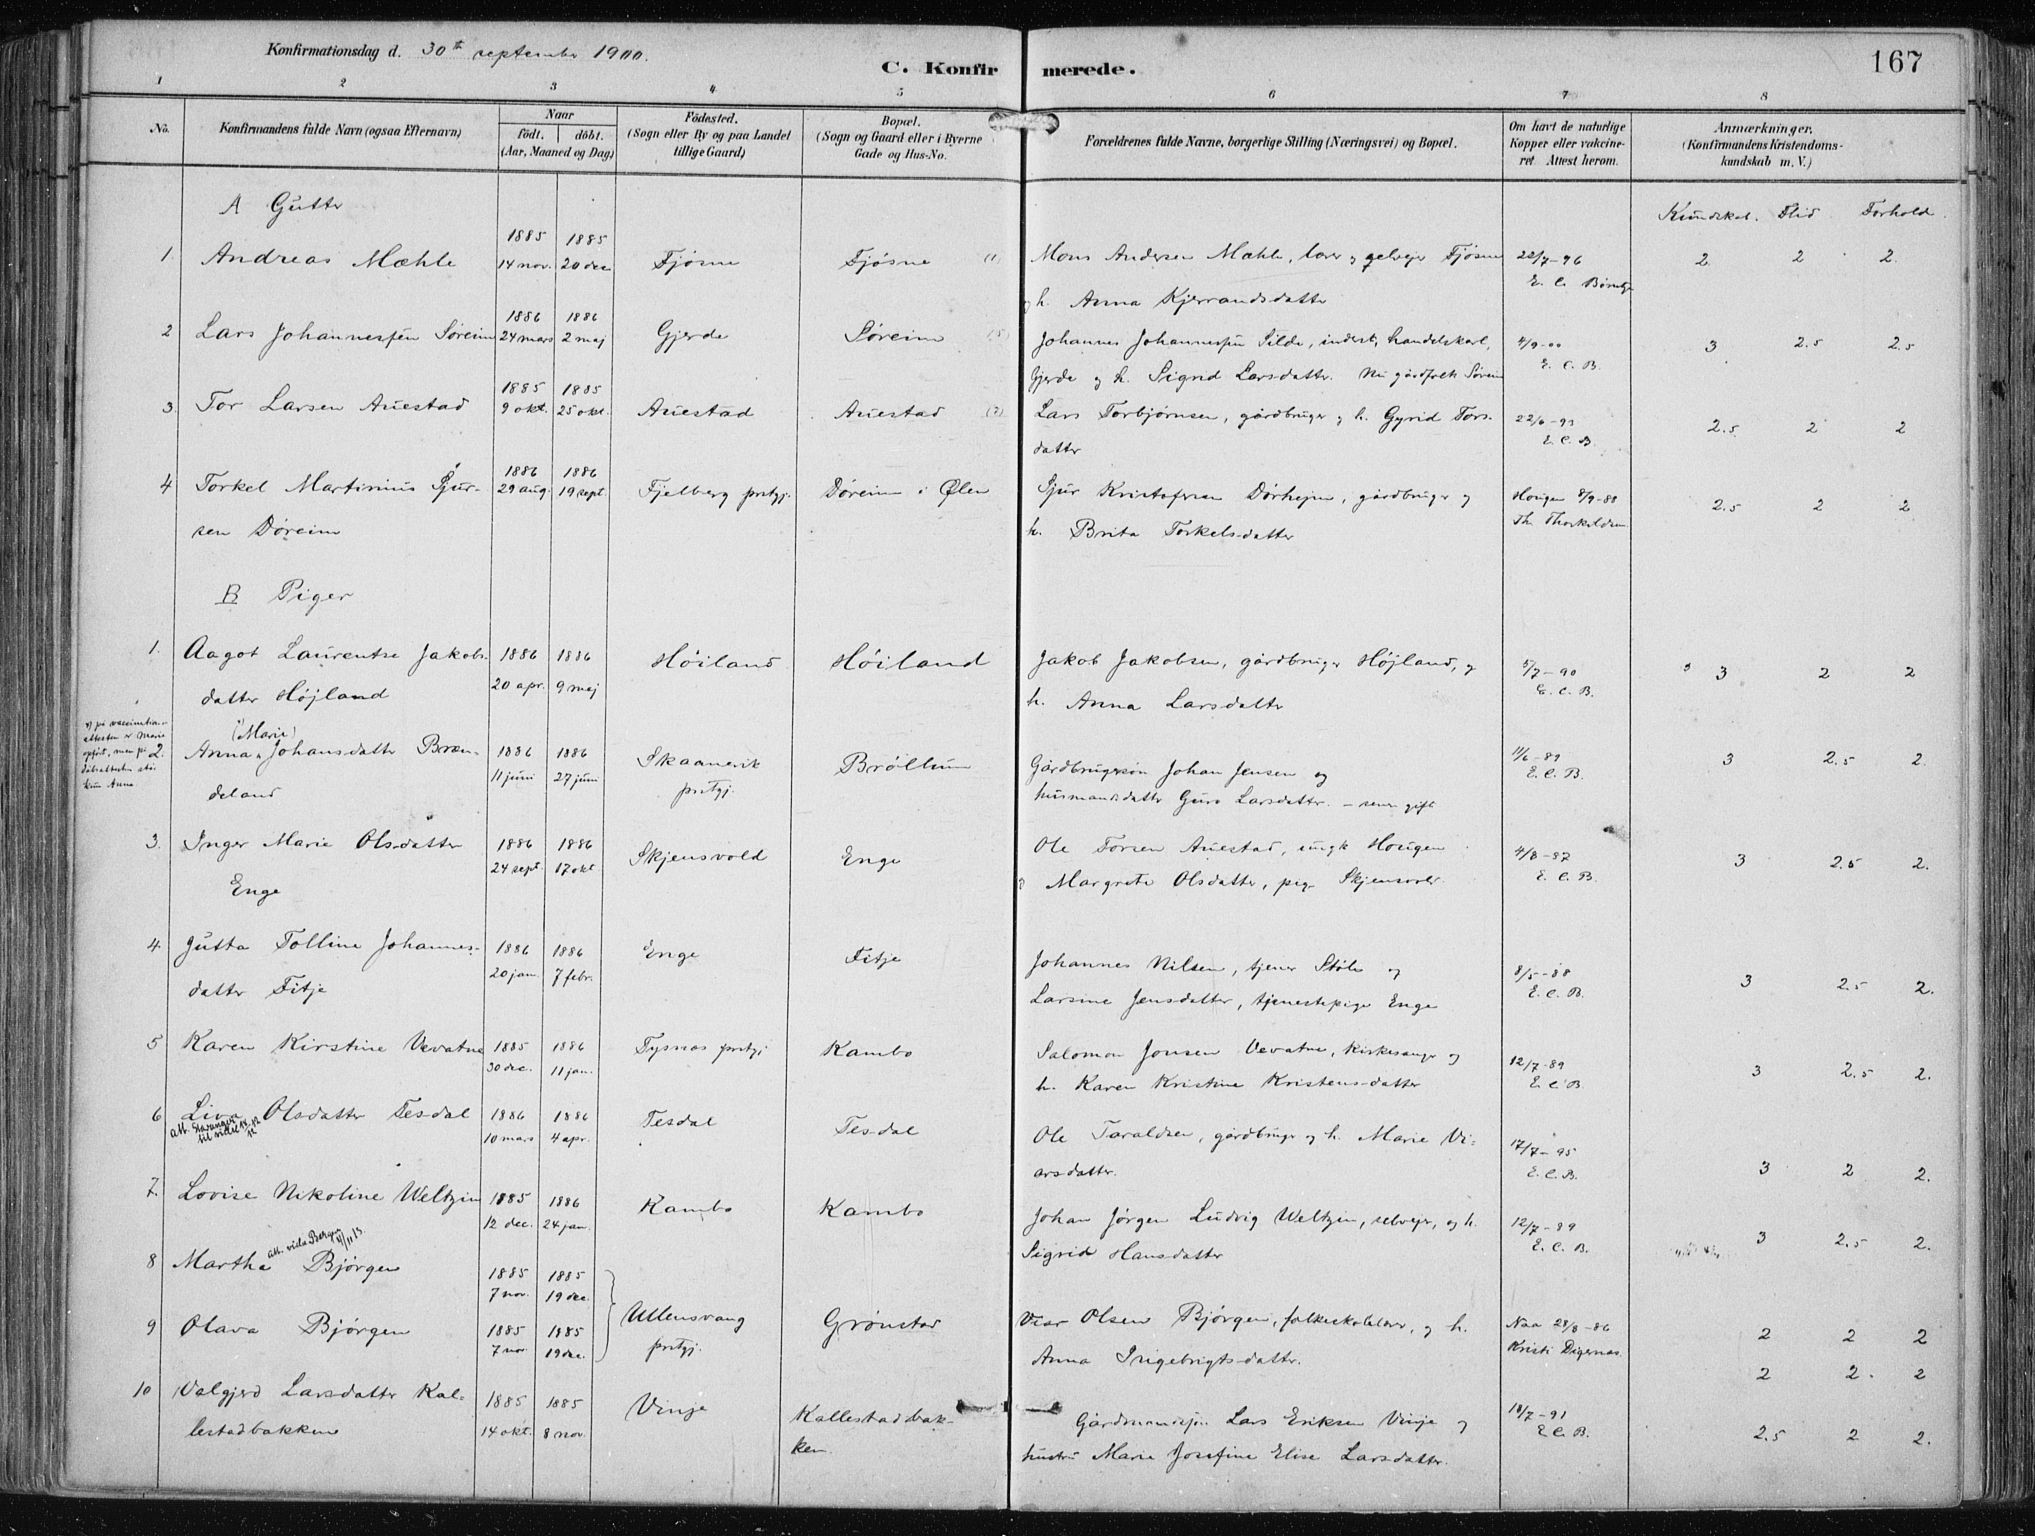 Konfirmationsdag d. 30th september 1900.
C. Konfirmerede. 167
1 2 3 4 5 6 7 8
No.
Konfirmandens fulde Navn (ogsaa Efternavn)
Naar
födt. döbt.
(Aar, Maaned og Dag)
Födested.
(Sogn eller By og paa Landet
tillige Gaard)
Bopæl.
(Sogn og Gaard eller i Byerne
Gade og Hus-No.
Forældrenes fulde Navne, borgerlige Stilling (Næringsvei) og Bopæl.
Om havt de naturlige
Kopper eller vakcine-
ret. Attest herom.
Anmærkninger.
(Konfirmandens Kristendoms-
kundskab m. V.)
A Gutter
Kundskab. Flid Forhold.
1885 1885
1. Andreas Mæhle 14 nov. 20 dec Fjøsne Fjøsne (1) Mons Andersen Mæhle, lærer og selvejer Fjøsne 22/7-96 2. 2 2.
og h. Anna Kjerrandsdatter E. C.
1886 1886
2 Lars Johannessen Søreim 24 mars 2 maj Gjerde Søreim (5) Johannes Johannessen Silde, inderst, handelskarl, 4/9-00 3 2.5 2.5
Gjerde og h. Sigrid Larsdatter. Nu gårdfolk Søreim E. C. B.
1885 1885
3. Tor Larsen Auestad 9 okt. 25 okt. Auestad Auestad (7) Lars Torbjørnsen, gårdbruger og h. Gyrid Tors- 22/6-93 2.5 2 2
datter E. C. B.
1886 1886
4 Torkel Martinius Sjur- 29 aug. 19 sept. Fjelberg prstgj. Døreim i Ølen Sjur Kristofersen Dørhejm, gårdbruger og Hougen 8/9-88 2.5 2 2
sen Døreim h. Brita Torkelsdatter Th. Thorkeldsen
B Piger
1. Aagot Laurentse Jakobs- 1886 1886 Høiland Høiland Jakob Jakobsen, gårdbruger Højland, og 5/7-90 3 2 2
datter Højland 20 apr. 9 maj h. Anna Larsdatter E. C. B.
på vaccination-
attesten er Marie
opført, men på
dåbsattesten står
kun Anna.
(Marie)
2. Anna Johansdatter Bræn- 1886 1886 Skaanevik Brölhun Gårdbrugersøn Johan Jensen og 11/6-89 3 2.5 2.
deland 11 juni 27 juni prstgj. husmandsdatter Guro Larsdatter. – senere gift E. C. B.
3. Inger Marie Olsdatter 1886 1886 Skjensvold Enge Ole Torsen Auestad, ungk Hougen 4/8-87 3 2.5 2.
Enge 24 sept. 17 okt Margrete Olsdatter, pige Skjensvold. E. C. B.
4. Jutta Tolline Johannes- 1886 1886 Enge Fitje Johannes Nilsen, tjener Støle og 8/5-88 3 2.5 2.
datter Fitje 20 jan. 7 febr. Larsine Jensdatter, tjenestepige Enge E. C. B.
5 Karen Kirstine Vevatne 1885 1886 Tysnæs prstgj Kambo Salomon Jonsen Vevatne, kirkesanger og 12/7-89 3 2.5 2.
30 dec. 11 jan. h. Karen Kristine Kristensdatter E. C. B.
6 Liva Olsdatter Tesdal 1886 1886 Tesdal Tesdal Ole Taraldsen, gårdbruger og h. Marie Vi- 17/7-95 3 2 2.
att. Stavanger til viels. 10 mars 4 apr. arsdatter. E. C. B.
7. Lovise Nikoline Weltzin 1885 1886 Kambo Kambo Johan Jørgen Ludvig Weltzin, selvejer, og h. 12/7-89 3 2.5 2.
12 dec. 24 jan. Sigrid Hansdatter E. C. B.
att. viels Bergen 4/11 13.
8 Martha Bjørgen 1885 1885
7 nov. 19 dec.
9 Olava Bjørgen 1885 1885 Ullensvang Grønstad Viar Olsen Bjørgen, folkeskolelærer, og h. Naa 28/8-86 2 2 2
7 nov 19 dec. prstgj. Anna Ingebrigtsdatter. Kristi Digernæs. 2 2. 2
10 Valgjerd Larsdatter Kal- 1885 1885 Vinje Kallestadbak- Gårdmandssøn Lars Eriksen Vinje og 18/7-91 2.5 2 2.
lestadbakken 14 okt. 8 nov. ken. hustru Marie Josefine Elise Larsdatter. E. C. B.